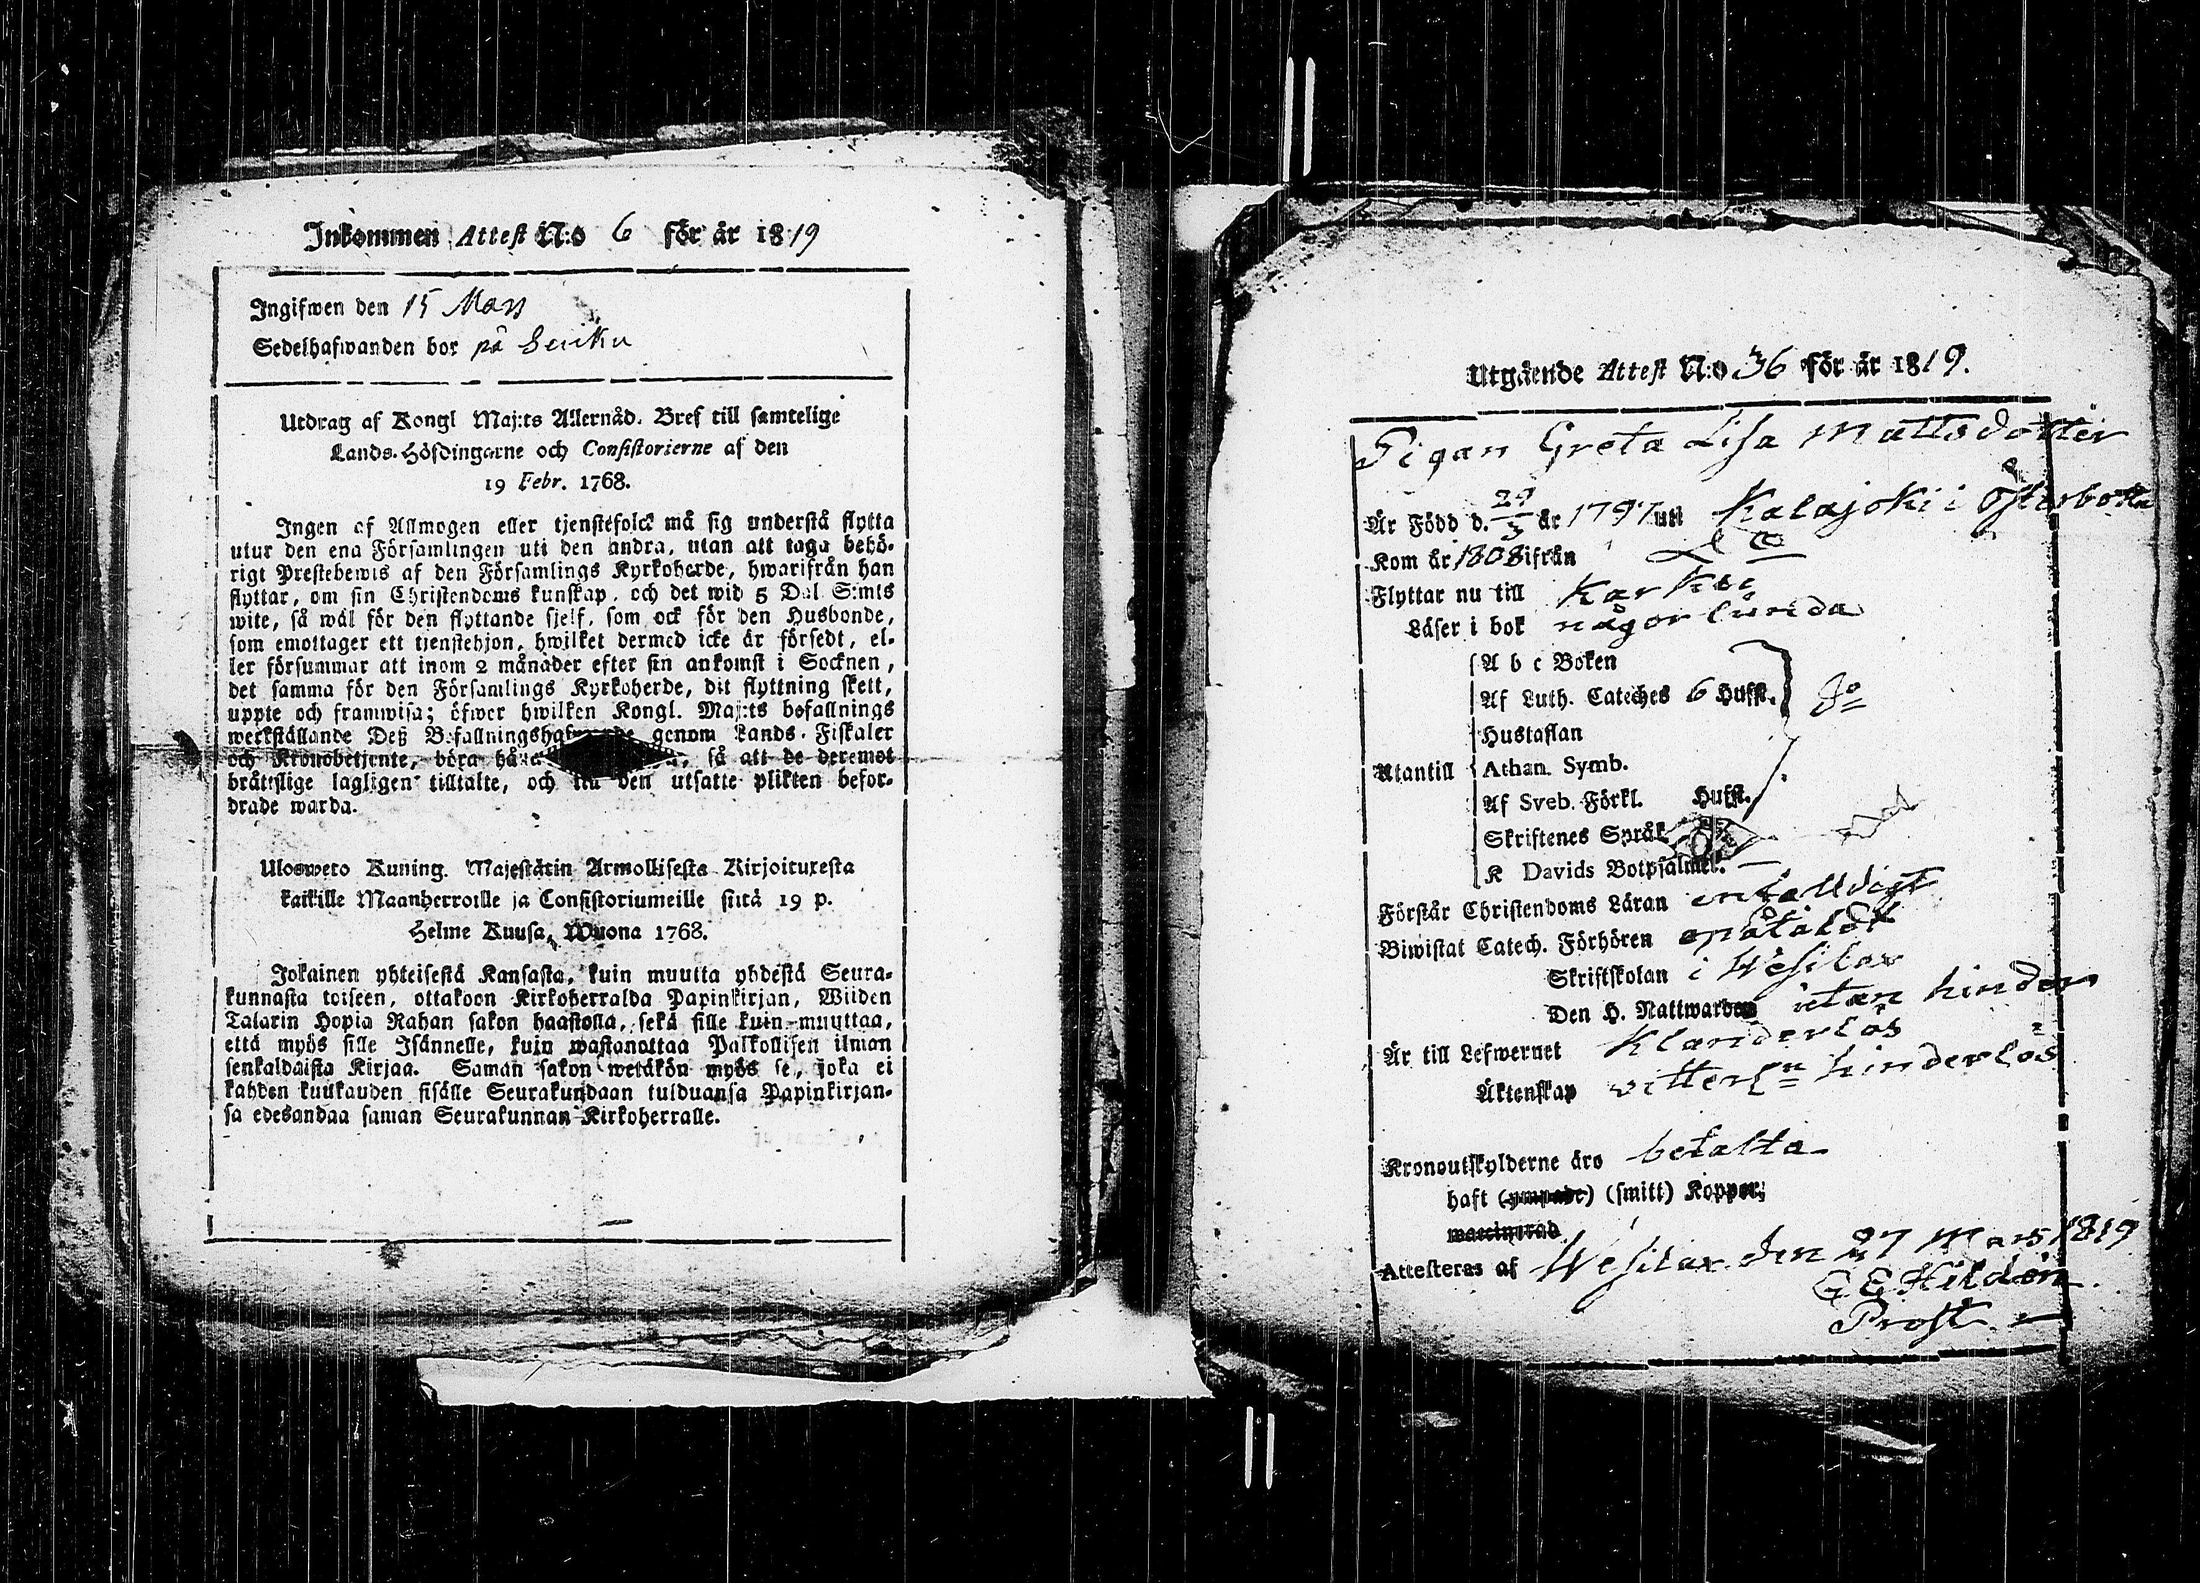 Inkommen Attest N:o 6 för år 1819
Ingifwen den 15 Mars
Sedelhafwanden bor på
Utdrag af Kongl Maj:ts Allernåd. Bref till samtelige
Lands-Höfdingarne och Consistorierne af den
19 Febr. 1768.
Ingen af Allmogen eller tjenstefolck må sig understå flytta
utur den ena Församlingen uti den andra, utan att taga behö-
rigt Prestebewis af den Församlings Kyrkoherde, hwarifrån han
flyttar, om sin Christendoms kunskap, och det wid 5 Dal S:mts
wite, så wäl för den flyttande sjelf, som ock för den Husbonde,
som emottager ett tjenstehjon, hwilket dermed icke är försedt, el-
ler försummar att inom 2 månader efter sin ankomst i Socknen,
det samma för den Församlings Kyrkoherde, dit flyttning skett,
uppte och framwisa; öfwer hwilken Kongl. Maj:ts befallnings
werkställande Deß Befallningshafwande genom Lands-Fiskaler
och Kronobetjente, böra så att de deremot
bråttslige lagligen tilltalte, och den utsatte plikten befor-
drade warda.
Ulosweto Kuning. Majestätin Armollisesta Kirjoituresta
kaikille Maanherroille ja Consistoriumeille siitä 19 p.
Helme Kuusa, Wuona 1768.
Jokainen yhteisestä Kansasta, kuin muutta yhdestä Seura-
kunnasta toiseen, ottakoon Kirkoherralda Papinkirjan, Wiiden
Talarin Hopia Rahan sakon haastolla, sekä sille kuin muuttaa,
että myös sille Isännelle, kuin wastanottaa Palkollisen ilman
senkaldaista Kirjaa. Saman sakon wetäkön myös se, joka ei
kahden kuukauden sisälle Seurakundaan tulduansa Papinkirjan-
sa edesandaa saman Seurakunnan Kirkoherralle.
Utgående Attest N:o 36 för år 1819.
Pigan Greta Lisa Mattsdotter
Är Född d. 29/3 år 1797 uti Kalajoki i Österbotn
Kom år 1808 ifrån do
Flyttar nu till Karkku
Läser i bok någorlunda
A b c Boken
Af Luth. Cateches 6 Hufst. do
Hustaflan
Utantill Athan. Symb.
Af Sveb. Förkl. Hufst.
Skriftenes Språk
K Davids Botpsalmer.
Förstår Christendoms Läran enfalldigt
Biwistat Catech. Förhören opåtaldt
Skriftskolan i Wesilax
Den H. Nattwarden utan hinder
Är till Lefwernet klanderlös
Äktenskap witterl:n hinderlös
Kronoutskylderne äro betalta
haft (ympade) (smitt) Koppor;
waccinerad
Attesteras af Wesilax den 27 Mars 1819
G E Hildén
Prost.